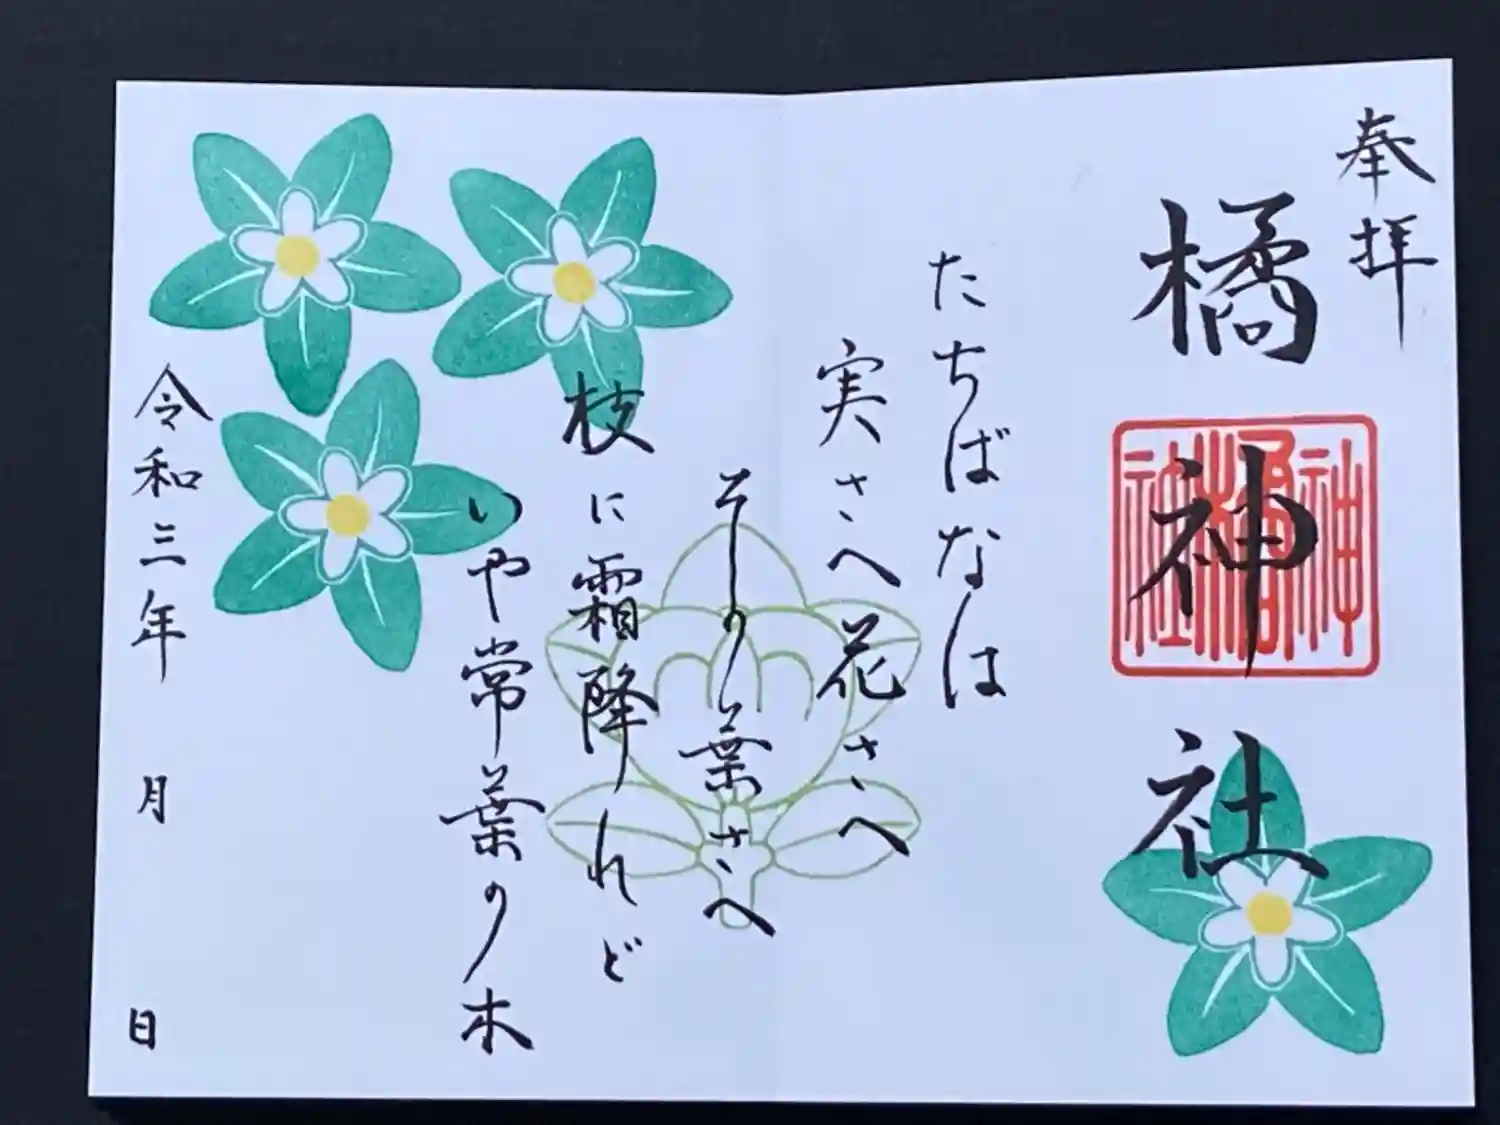 奉拝
橘神社
神橘社
たちばなは
実さへ花さへ
その葉さへ
枝に霜降れど
いや常葉の木
令和三年 月 日